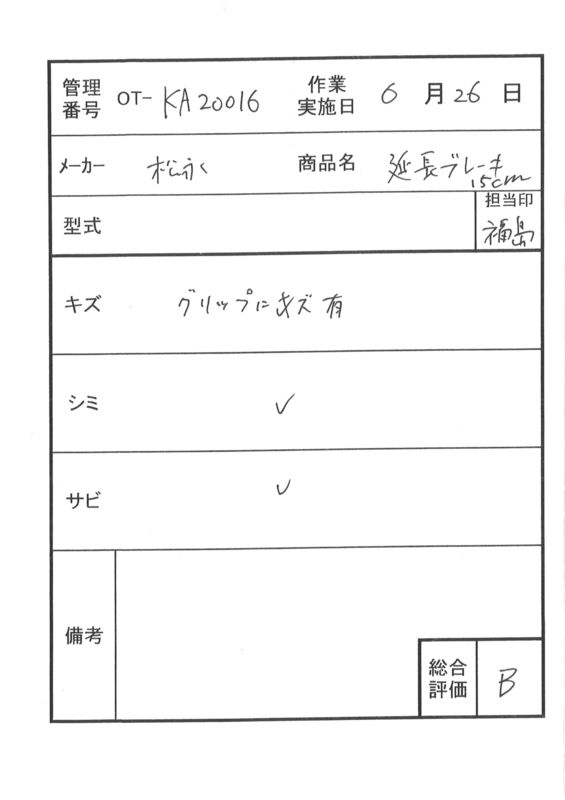 管理番号 OT- KA20016 作業実施日 6月26日
メーカー 松永 商品名 延長ブレーキ 15cm
型式 担当印 福島
キズ グリップにキズ有
シミ ✓
サビ ✓
備考
総合評価 B